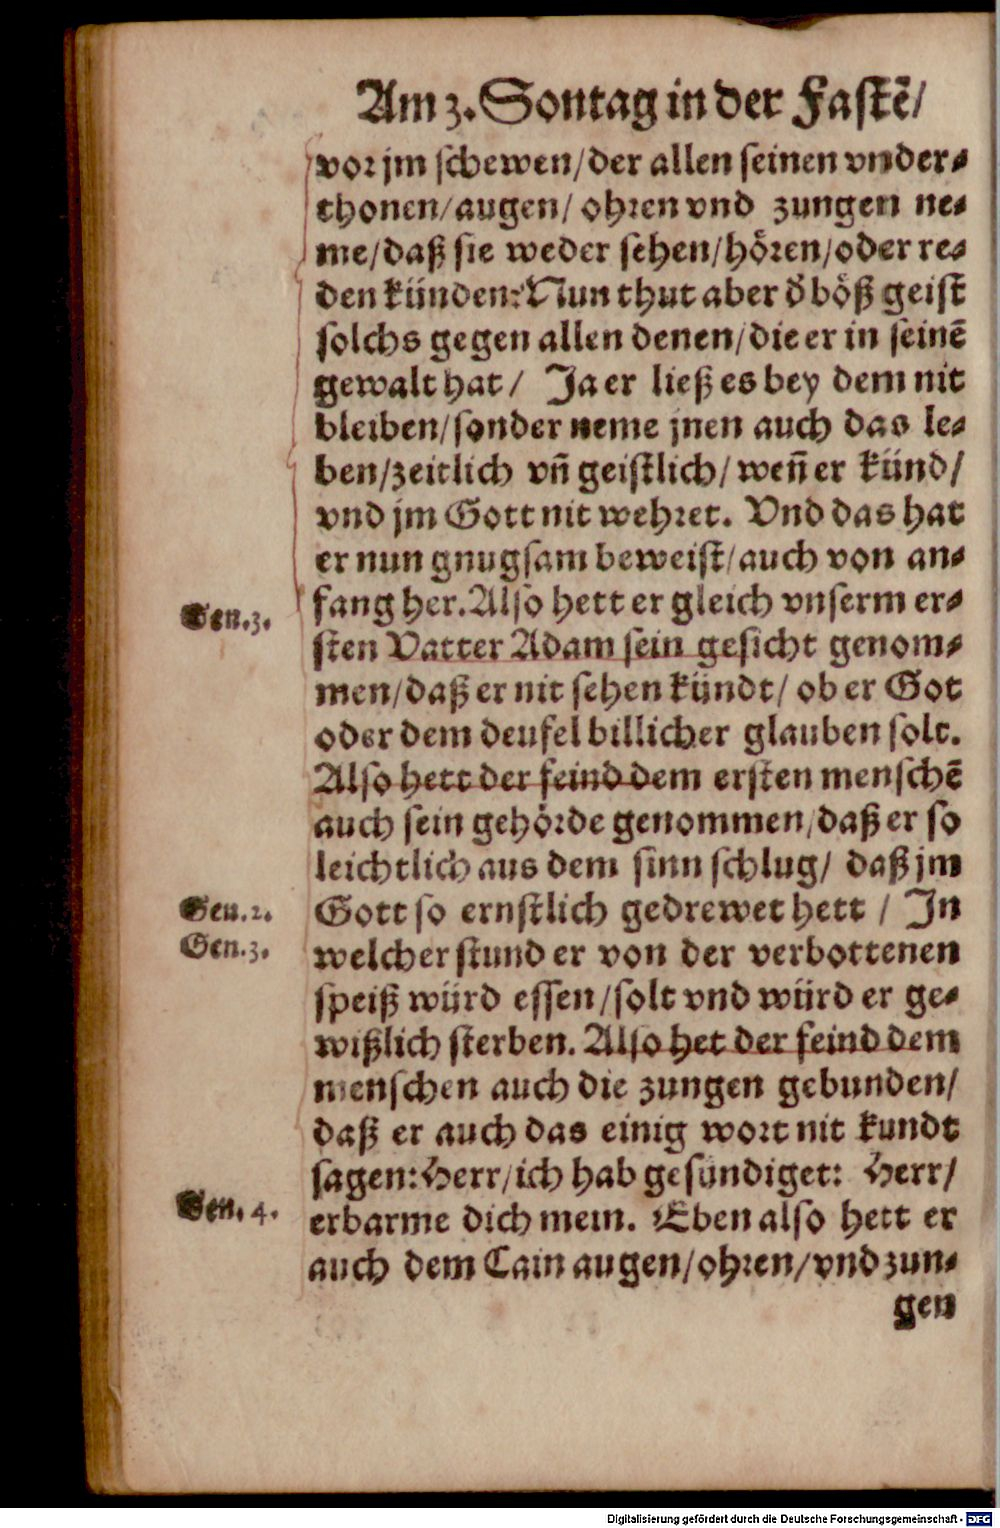 Am 3. Sontag in der Fastẽ/
vor jm schewen/der allen seinen vnder⸗
thonen/augen/ ohren vnd zungen ne⸗
me/daß sie weder sehen/hören/oder re⸗
den künden: Nun thut aber d̕ böß geist
solchs gegen allen denen/die er in seinẽ
gewalt hat/ Ja er ließ es bey dem nit
bleiben/sonder neme jnen auch das le⸗
ben/zeitlich vñ geistlich/weñ er künd/
vnd jm Gott nit wehret. Vnd das hat
er nun gnugsam beweist/auch von an⸗
fang her. Also hett er gleich vnserm er⸗
Gen.3.
sten Vatter Adam sein gesicht genom⸗
men/daß er nit sehen kündt/ ob er Got
oder dem deufel billicher glauben solt.
Also hett der feind dem ersten menschẽ
auch sein gehörde genommen/daß er so
leichtlich aus dem sinn schlug/ daß jm
Gott so ernstlich gedrewet hett / In
Gen.2.
welcher stund er von der verbottenen
Gen.3.
speiß würd essen/solt vnd würd er ge⸗
wißlich sterben. Also het der feind dem
menschen auch die zungen gebunden/
daß er auch das einig wort nit kundt
sagen: Herr/ich hab gesündiget: Herr/
erbarme dich mein. Eben also hett er
Gen. 4.
auch dem Cain augen/ohren/vnd zun⸗
gen
Digitalisierung gefördert durch die Deutsche Forschungsgemeinschaft - DFG